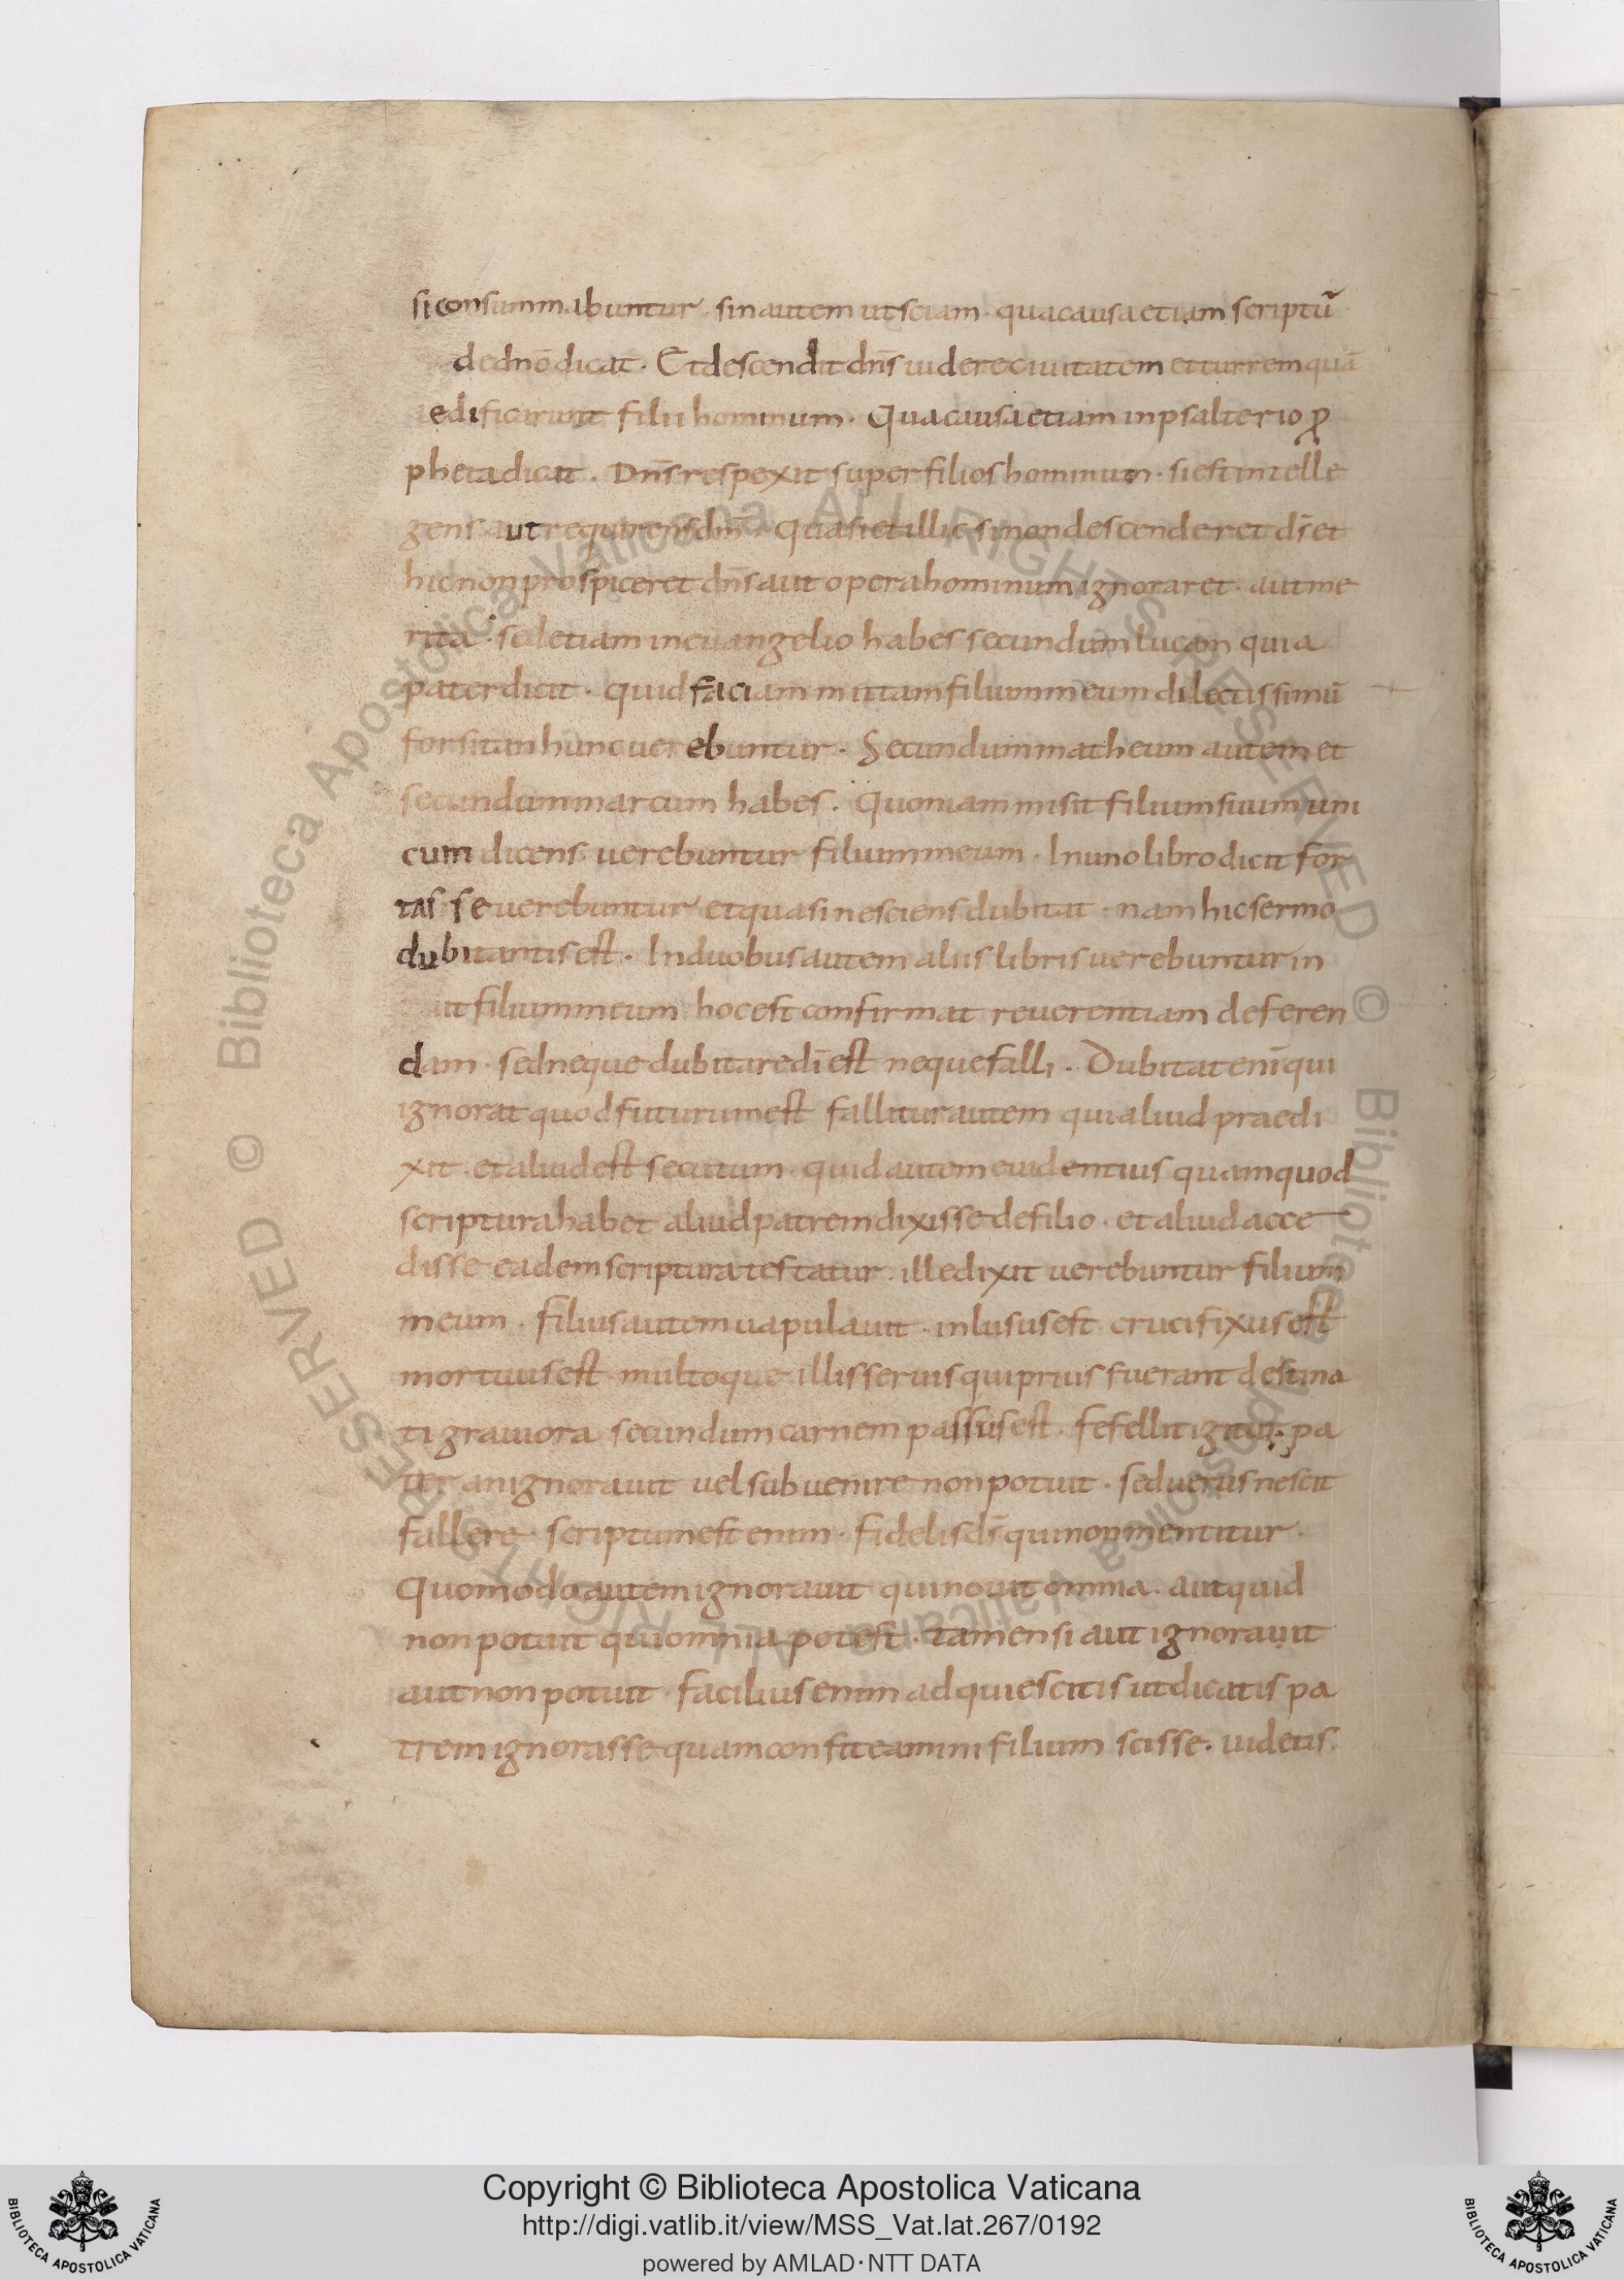 si consummabuntur · sin autem ut sciam · qua causa etiam scriptū
de dnō dicat · Et descendit dns̄ uidere ciuitatem et turrem quā
aedificarunt filii hominum · Qua causa etiam in psalterio ꝓ
pheta dicat . Dns̄ respexit super filios hominum · si est intelle
gens aut requirens dm̄ · Quasi et illic si non descenderet ds̄ et
hic non prospiceret dns̄ aut opera hominum ignoraret · aut me
rita · sed etiam in euangelio habes secundum lucam quia
pater dicit · quid faciam mittam filium meum dilectissimū
forsitan hunc uerebuntur · Secundum matheum autem et
secundum marcum habes . Quoniam misit filium suum uni
cum dicens uerebuntur filium meum · In uno libro dicit for
tasse uerebuntur et quasi nesciens dubitat · nam hic sermo
dubitantis est · In duobus autem aliis libris uerebuntur in
it filium meum hoc est confirmat reuerentiam deferen
dam · sed neque dubitare dī est neque falli . Dubitat enī qui
ignorat quod futurum est fallitur autem qui aliud praedi
xit · et aliud est secutum · quid autem euidentius quam quod
scriptura habet aliud patrem dixisse de filio · et aliud acce
disse eadem scriptura testatur . ille dixit uerebuntur filium
meum · filius autem uapulauit · inlusus est crucifixus est
mortuus est multoque illis seruis qui prius fuerant destina
ti grauiora secundum carnem passus est · fefellit igitur · pa
ter an ignorauit uel subuenire non potuit · sed uerus nescit
fallere · scriptum est enim · fidelis ds̄ qui non mentitur ·
Quomodo autem ignorauit qui nouit omnia · aut quid
non potuit qui omnia potest · tamen si aut ignorauit
aut non potuit · facilius enim adquiescitis ut dicatis pa
trem ignorasse quam confiteamini filium scisse · uidetis .
© Biblioteca Apostolica Vaticana ALL RIGHTS RESERVED © Biblioteca Apostolica Vaticana ALL RIGHTS RESERVED
Copyright © Biblioteca Apostolica Vaticana
http://digi.vatlib.it/view/MSS_Vat.lat.267/0192
powered by AMLAD · NTT DATA
BIBLIOTECA APOSTOLICA VATICANA
BIBLIOTECA APOSTOLICA VATICANA